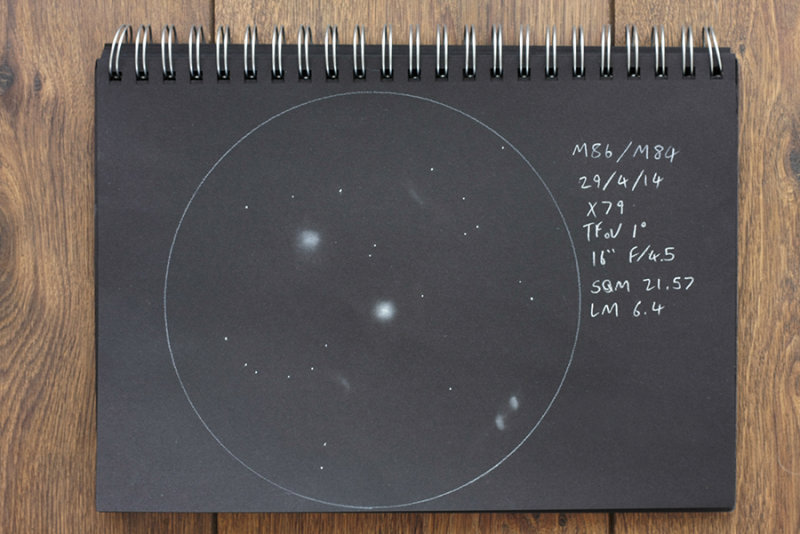 M86/M84
29/4/14
X79
TFoV 1°
16" F/4.5
SQM 21.57
LM 6.4